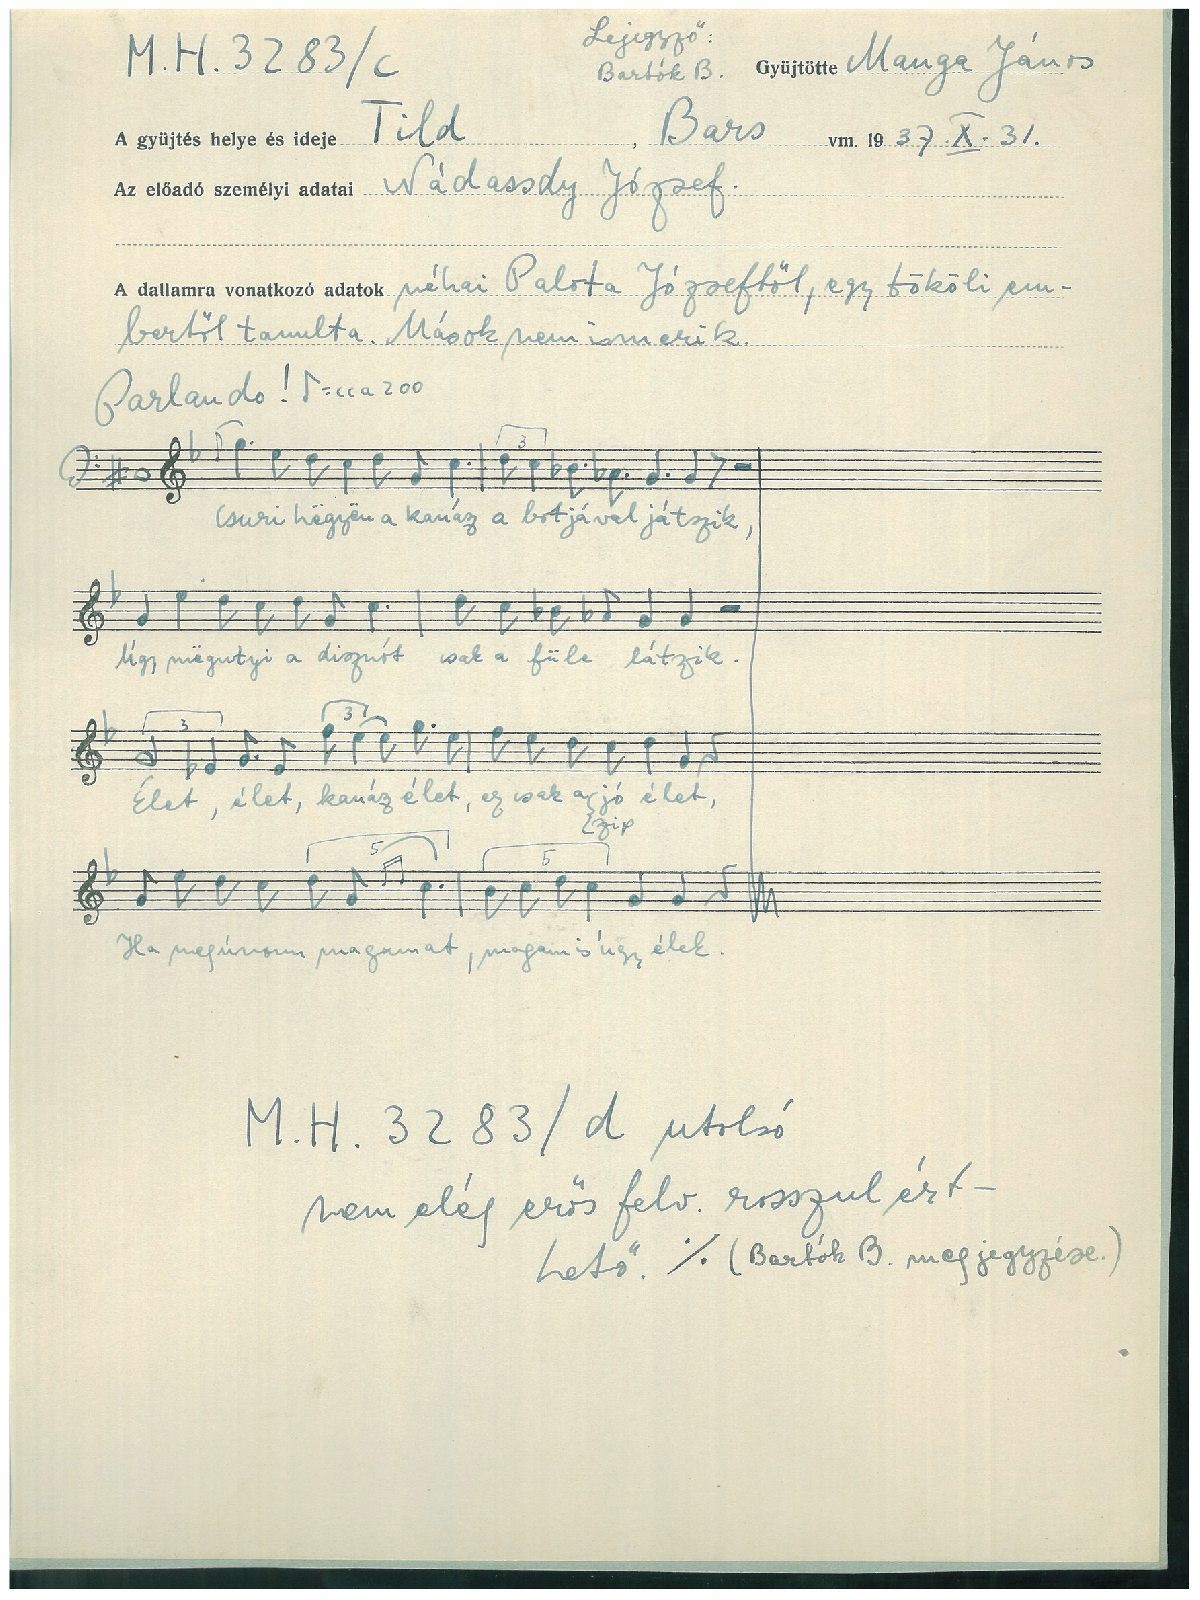 M.H. 3283/c
Lejegyző:
Bartók B.
Gyüjtötte Manga János
A gyüjtés helye és ideje Tild, Bars vm. 1937. X. 31.
Az előadó személyi adatai Nádassdy József.
A dallamra vonatkozó adatok néhai Palota Józseftől, egy tököli em-
bertől tanulta. Mások nem ismerik.
Parlando! ♪=cca 200
3
Csuri hëgyën a kanáz a botjával játszik,
Úgy mëgutyi a disznót csak a füle látzik.
3 3
Élet, élet, kanáz élet, ez csak a jó élet,
szip
5 5
Ha megúnom magamat, magam is úgy élek.
M.H. 3283/d utolsó
nem elég erős felv. rosszul ért-
hető. ./. (Bartók B. megjegyzése.)